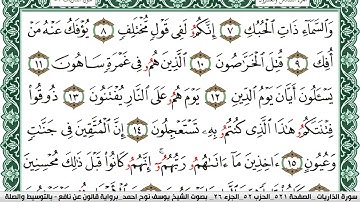 وَالسَّمَآءِ ذَاتِ الْحُبُكِ ۝٧ إِنَّكُمُۥ لَفِى قَوْلٍ مُّخْتَلِفٍ ۝٨ يُوفَكُ عَنْهُ مَنْ
أُفِكَ ۝٩ قُتِلَ الْخَرَّٰصُونَ ۝١٠ الَّذِينَ هُمُۥ فِى غَمْرَةٍ سَاهُونَ ۝١١
يَسْـَٔلُونَ أَيَّانَ يَوْمُ الدِّينِ ۝١٢ يَوْمَ هُمُۥ عَلَى النَّارِ يُفْتَنُونَ ۝١٣ ذُوقُوا۟
فِتْنَتَكُمُۥ هَٰذَا الَّذِى كُنتُمُۥ بِهِۦ تَسْتَعْجِلُونَ ۝١٤ إِنَّ الْمُتَّقِينَ فِى جَنَّٰتٍ
وَعُيُونٍ ۝١٥ ءَاخِذِينَ مَآ ءَاتَىٰهُمُۥ رَبُّهُمُۥٓ إِنَّهُمُۥ كَانُوا۟ قَبْلَ ذَٰلِكَ مُحْسِنِينَ
سورة الذاريات الصفحة ٥٢١ الحزب ٥٢ الجزء ٢٦ بصوت الشيخ يوسف نوح احمد برواية قالون عن نافع - بالتوسيط والصلة